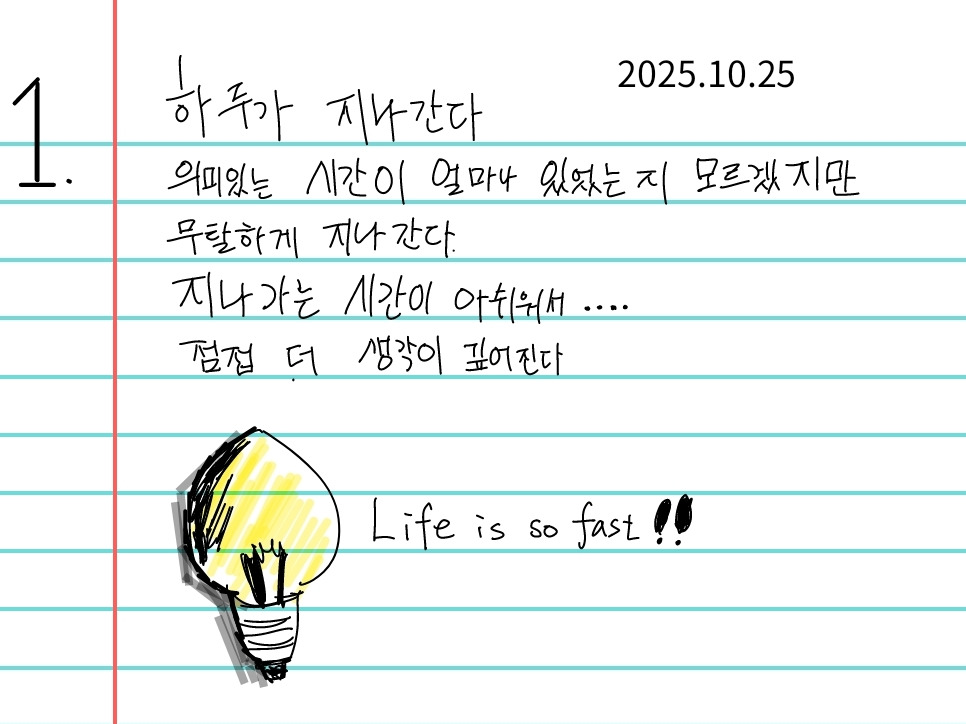 2025.10.25
1.
하루가 지나간다
의미있는 시간이 얼마나 있었는지 모르겠지만
무탈하게 지나간다.
지나가는 시간이 아쉬워서 ....
점접 더 생각이 깊어진다
Life is so fast!!